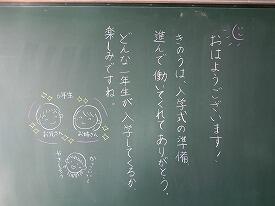 おはようございます！
きのうは、入学式の準備
進んで働いてくれてありがとう。
どんな一年生が入学してくるか
楽しみですね。
6年生
お兄さん
お姉さん